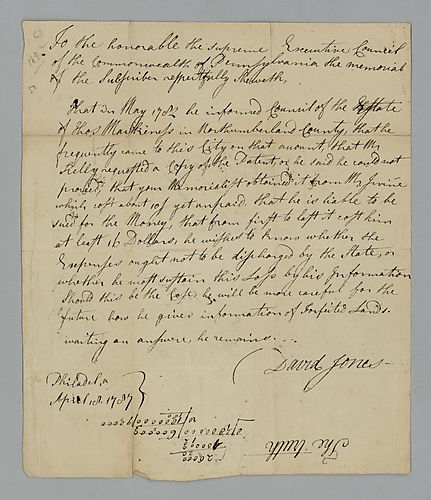 To the honorable the Supreme Executive Council
of the Commonwealth of Pennsylvania the memorial
of the Subscriber respectfully sheweth,
That in May 1782 he informed Council of the Estate
of Thos in Northumberland County, that he
frequently came to this City on that amount, that Mr
requested a Copy of the Patent or he said he could not
proceed, that your Memorialist obtained it from Mr Irvine
which cost about 10/ yet unpaid that he is liable to be
sued for the Money, that from first to last it cost him
at least 16 Dollars, he wishes to know whether the
Expenses ought not to be discharged by the State, or
whether he must sustain this Loss by his Information
Should this be the Case, he will be more careful for the
future how he gives information of Forfeited Lands.
waiting an answer he remains
David Jones
Philadela
April 18. 1787
The truth